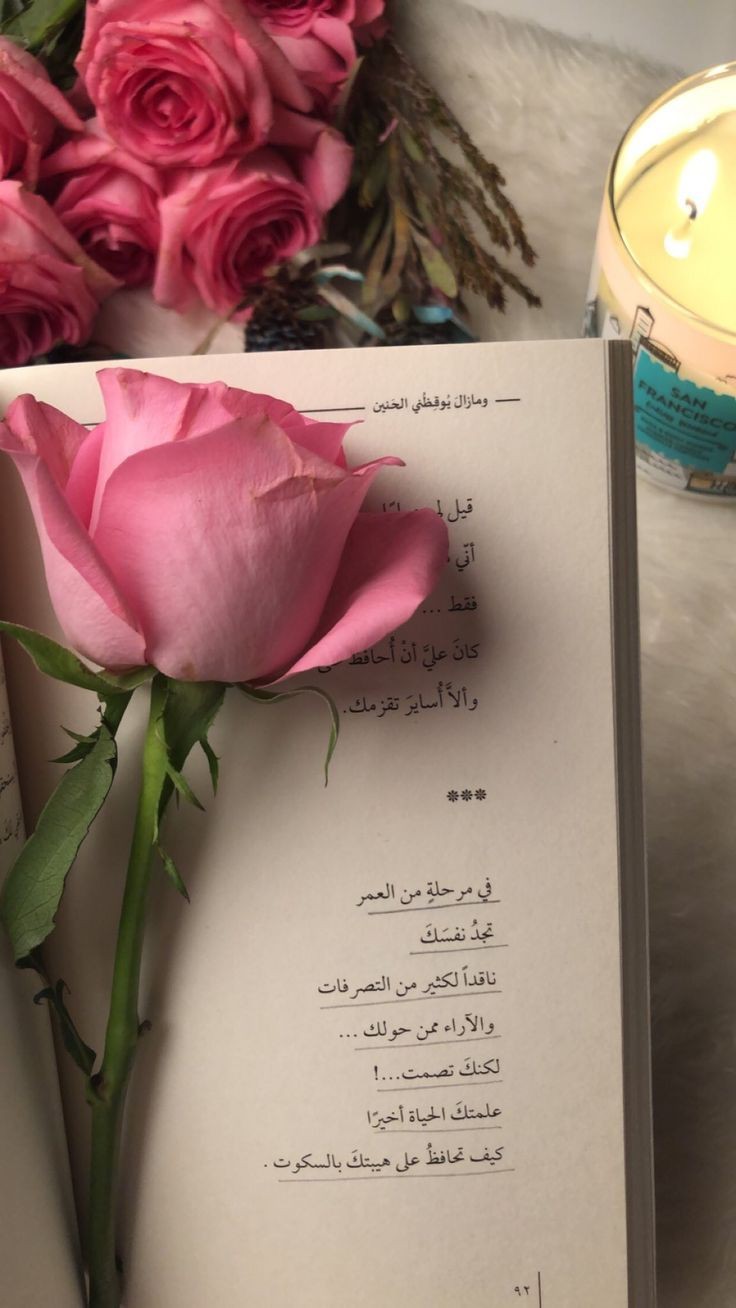 ومازالَ يُوقِظُني الحَنين
قيل
أنّي
فقط ...
كانَ عليَّ أنْ أُحافظ
وألاَّ أُسايرَ تقزمك.
***
في مرحلةٍ من العمر
تجدُ نفسَكَ
ناقداً لكثير من التصرفات
والآراء ممن حولك ...
لكنكَ تصمت...!
علمتكَ الحياة أخيرًا
كيف تحافظُ على هيبتكَ بالسكوت .
٩٢
SAN
FRANCISCO